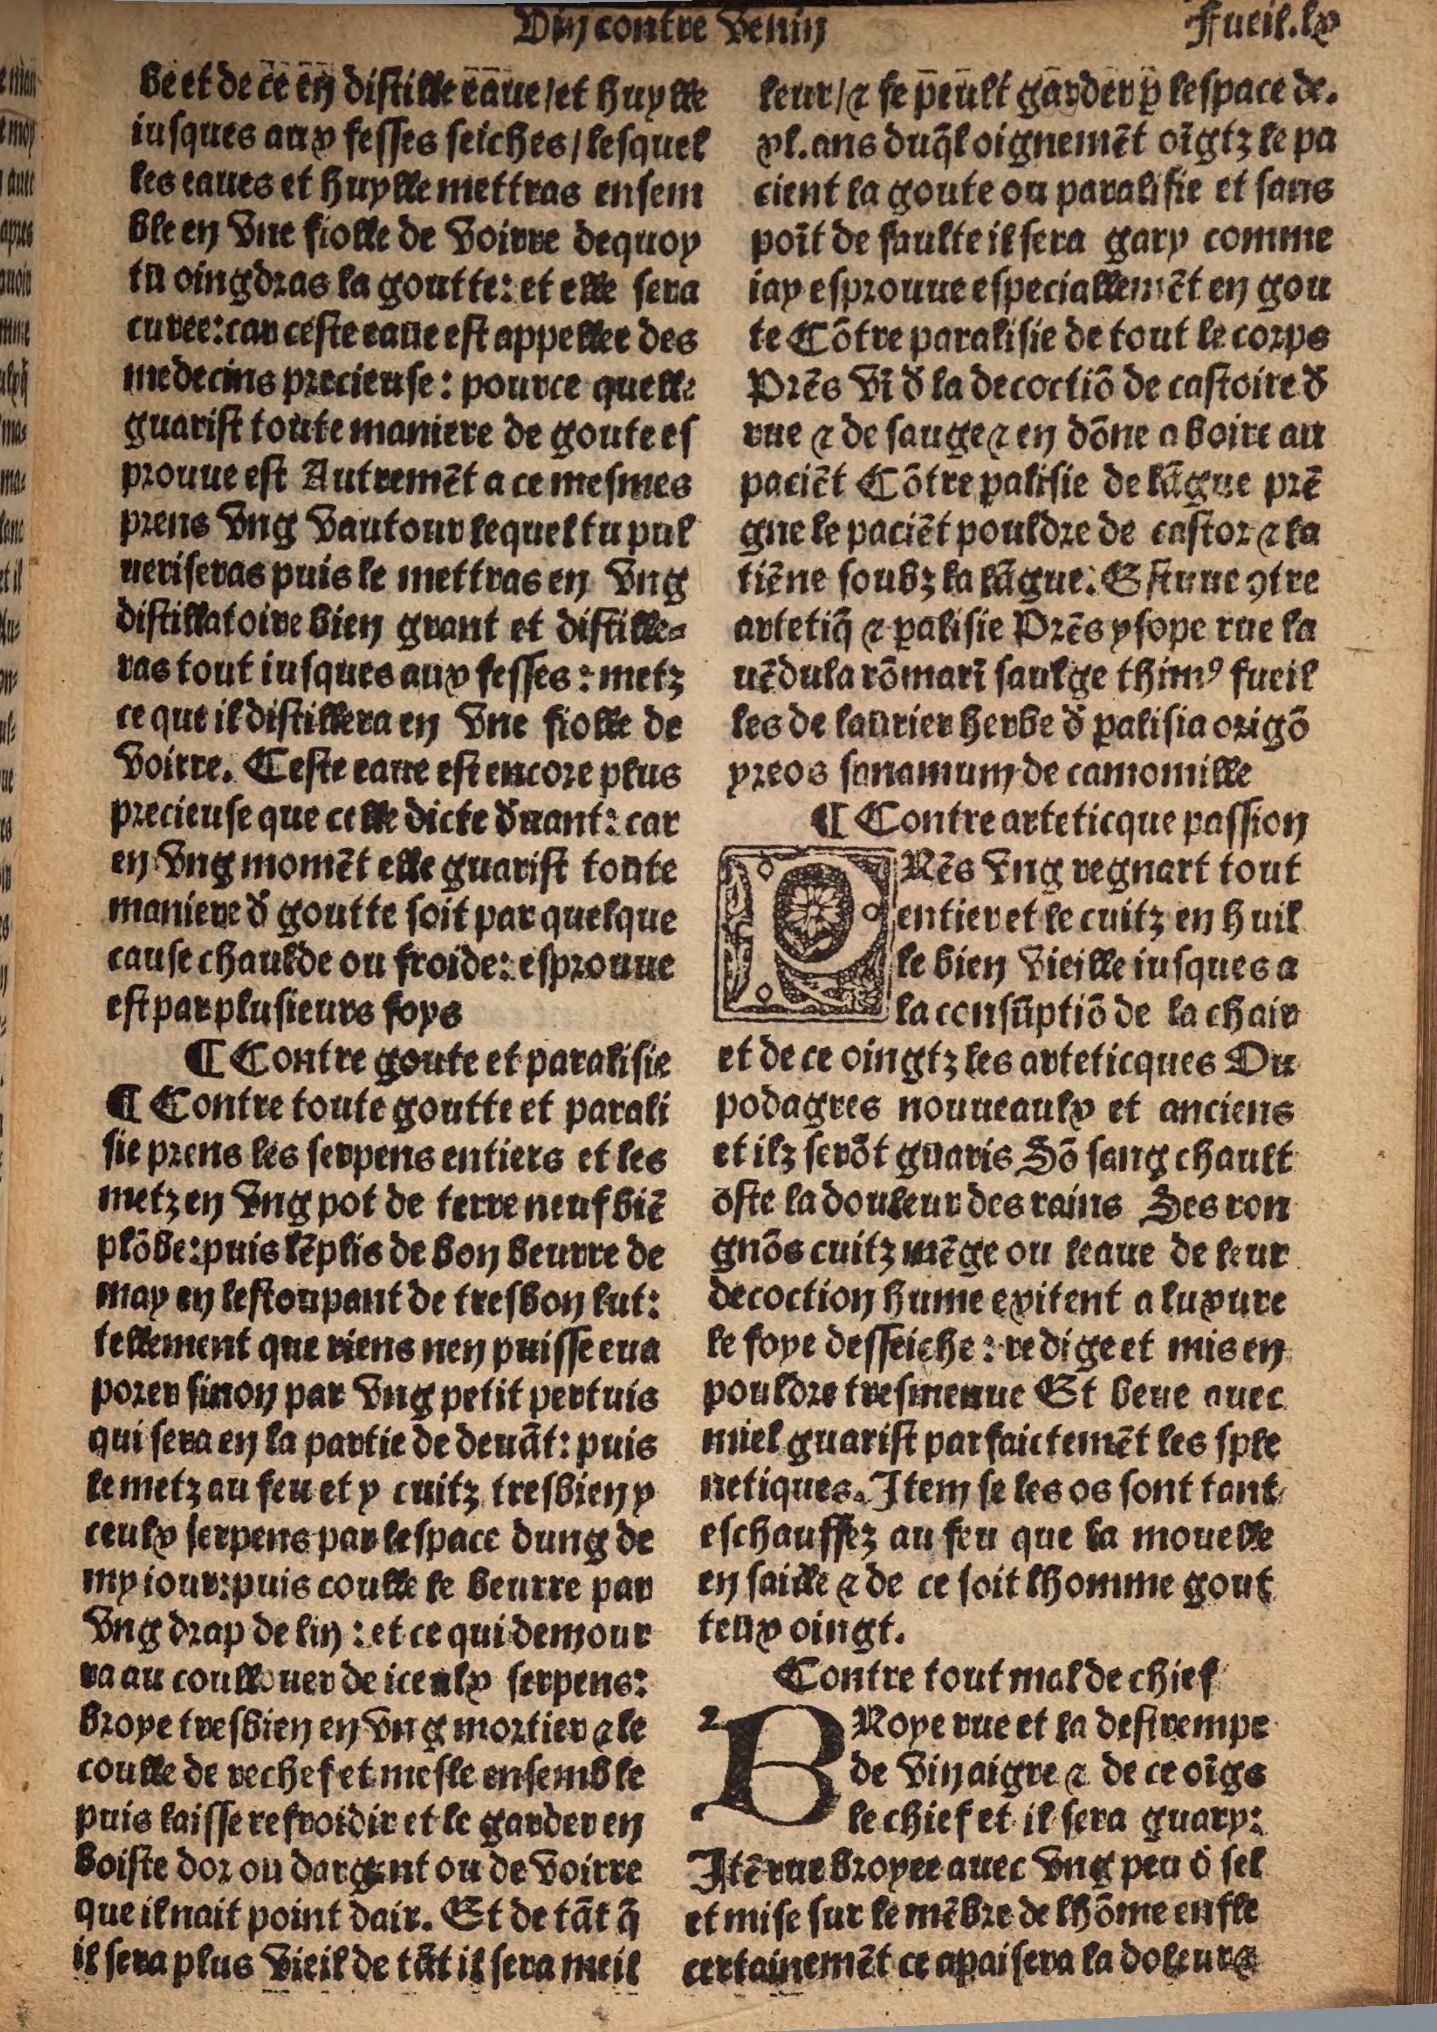 Vin contre Venin
Fueil.lx
be et de ce en distille eaue/et huylle
iusques aux fesses seiches/lesquel
les eaues et huylle mettras ensem
ble en vne fiolle de voirre dequoy
tu oingdras la goutte: et elle sera
curee: car ceste eaue est appellee des
medecins precieuse: pource quelle
guarist toute maniere de goute es
prouue est Autremẽt a ce mesmes
prens vng vautour lequel tu pul
ueriseras puis le mettras en vng
distillatoire bien grant et distille⸗
ras tout iusques aux fesses: metz
ce que il distillera en vne fiolle de
voirre. Ceste eaue est encore plus
precieuse que celle dicte d̃uant: car
en vng momẽt elle guarist toute
maniere d̃ goutte soit par quelque
cause chaulde ou froide: esprouue
est par plusieurs foys
¶ Contre goute et paralisie
¶ Contre toute goutte et parali
sie prens les serpens entiers et les
metz en vng pot de terre neuf biẽ
plõbe: puis lẽplis de bon beurre de
may en lestoupant de tresbon lut:
tellement que riens nen puisse eua
porer sinon par vng petit pertuis
qui sera en la partie de deuãt: puis
le metz au feu et y cuitz tresbien y
ceulx serpens par lespace dung de
my iour: puis coulle le beurre par
vng drap de lin: et ce qui demour
ra au coullouer de iceulx serpens:
broye tresbien en vng mortier ⁊ le
coulle de rechef et mesle ensemble
puis laisse refroidir et le garder en
boiste dor ou dargent ou de voirre
que il nait point dair. Et de tãt q̃
il sera plus vieil de tãt il sera meil
leur/⁊ se peult garder p̱ lespace de.
xl. ans duq̃l oignemẽt oĩgtz le pa
cient la goute ou paralisie et sans
poĩt de faulte il sera gary comme
iay esprouue especiallemẽt en gou
te Cõtre paralisie de tout le corps
Prẽs vĩ d̃ la decoctiõ de castoire d̃
rue ⁊ de sauge ⁊ en dõne a boire au
paciẽt Cõtre palisie de lãgue prẽ
gne le paciẽt pouldre de castor ⁊ la
tiẽne soubz la lãgue: Estuue ↄtre
artetiq̃ ⁊ ꝑalisie Prẽs ysope rue la
uẽdula rõmarĩ saulge thimꝰ fueil
les de laurier herbe d̃ ꝑalisia origõ
yreos sanamum de camomille
¶ Contre arteticque passion
PRẽs vng regnart tout
entier et le cuitz en huil
le bien vieille iusques a
la consũptiõ de la chair
et de ce oingtz les arteticques Ou
podagres nouueaulx et anciens
et ilz serõt guaris Sõ sang chault
oste la douleur des rains Ses ron
gnõs cuitz mẽge ou leaue de leur
decoction hume exitent a luxure
le foye desseiche: redige et mis en
pouldre tresmenue Et beue auec
miel guarist parfaictemẽt les sple
netiques. Item se les os sont tant
eschauffez au feu que la mouelle
en saille ⁊ de ce soit lhomme gout
teux oingt.
Contre tout mal de chief
BRoye rue et la destrempe
de vinaigre ⁊ de ce oĩgs
le chief et il sera guary:
Itẽ rue broyee auec vng peu d̃ sel
et mise sur le mẽbre de lhõme enfle
certainemẽt ce apaisera la doleur ⁊